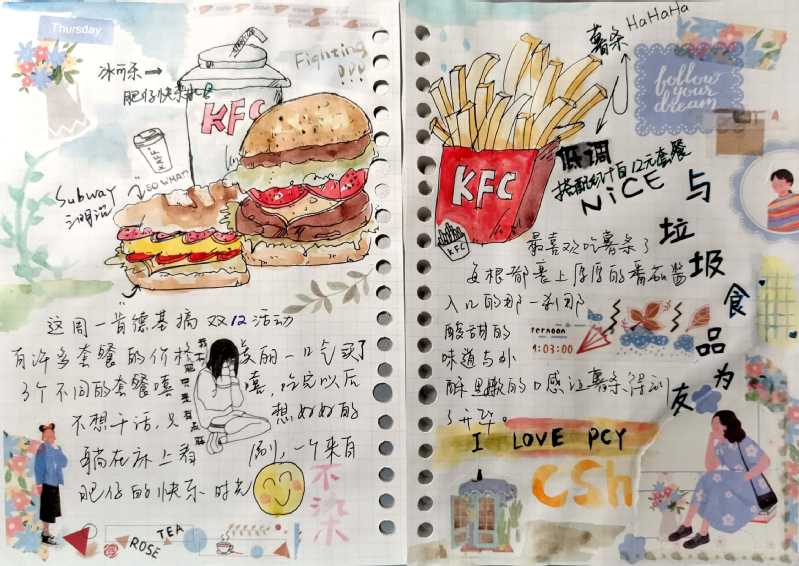 Thursday
冰可乐→
肥仔快乐水
Fighting
!!!
KFC
Subway
SO WHAT
这周一肯德基搞双12活动
有许多套餐的价格 一口气买了
3个不同的套餐嘻 嘻,吃完以后
不想干活,只 想好好的
躺在床上看 一个来自
肥仔的快乐时光
不染
TEA
ROSE
薯条 HaHaHa
follow
your
dream
低调
搭配红十百12元套餐
NiCE
KFC
KFC
与垃圾食品为友
最喜欢吃薯条了
每根都裹上厚厚的番茄酱
入口的那一刹那
酸甜的
味道与外
酥里嫩的口感让薯条得到
了升华。
ternoon
1:03:00
I LOVE PCY
CSh